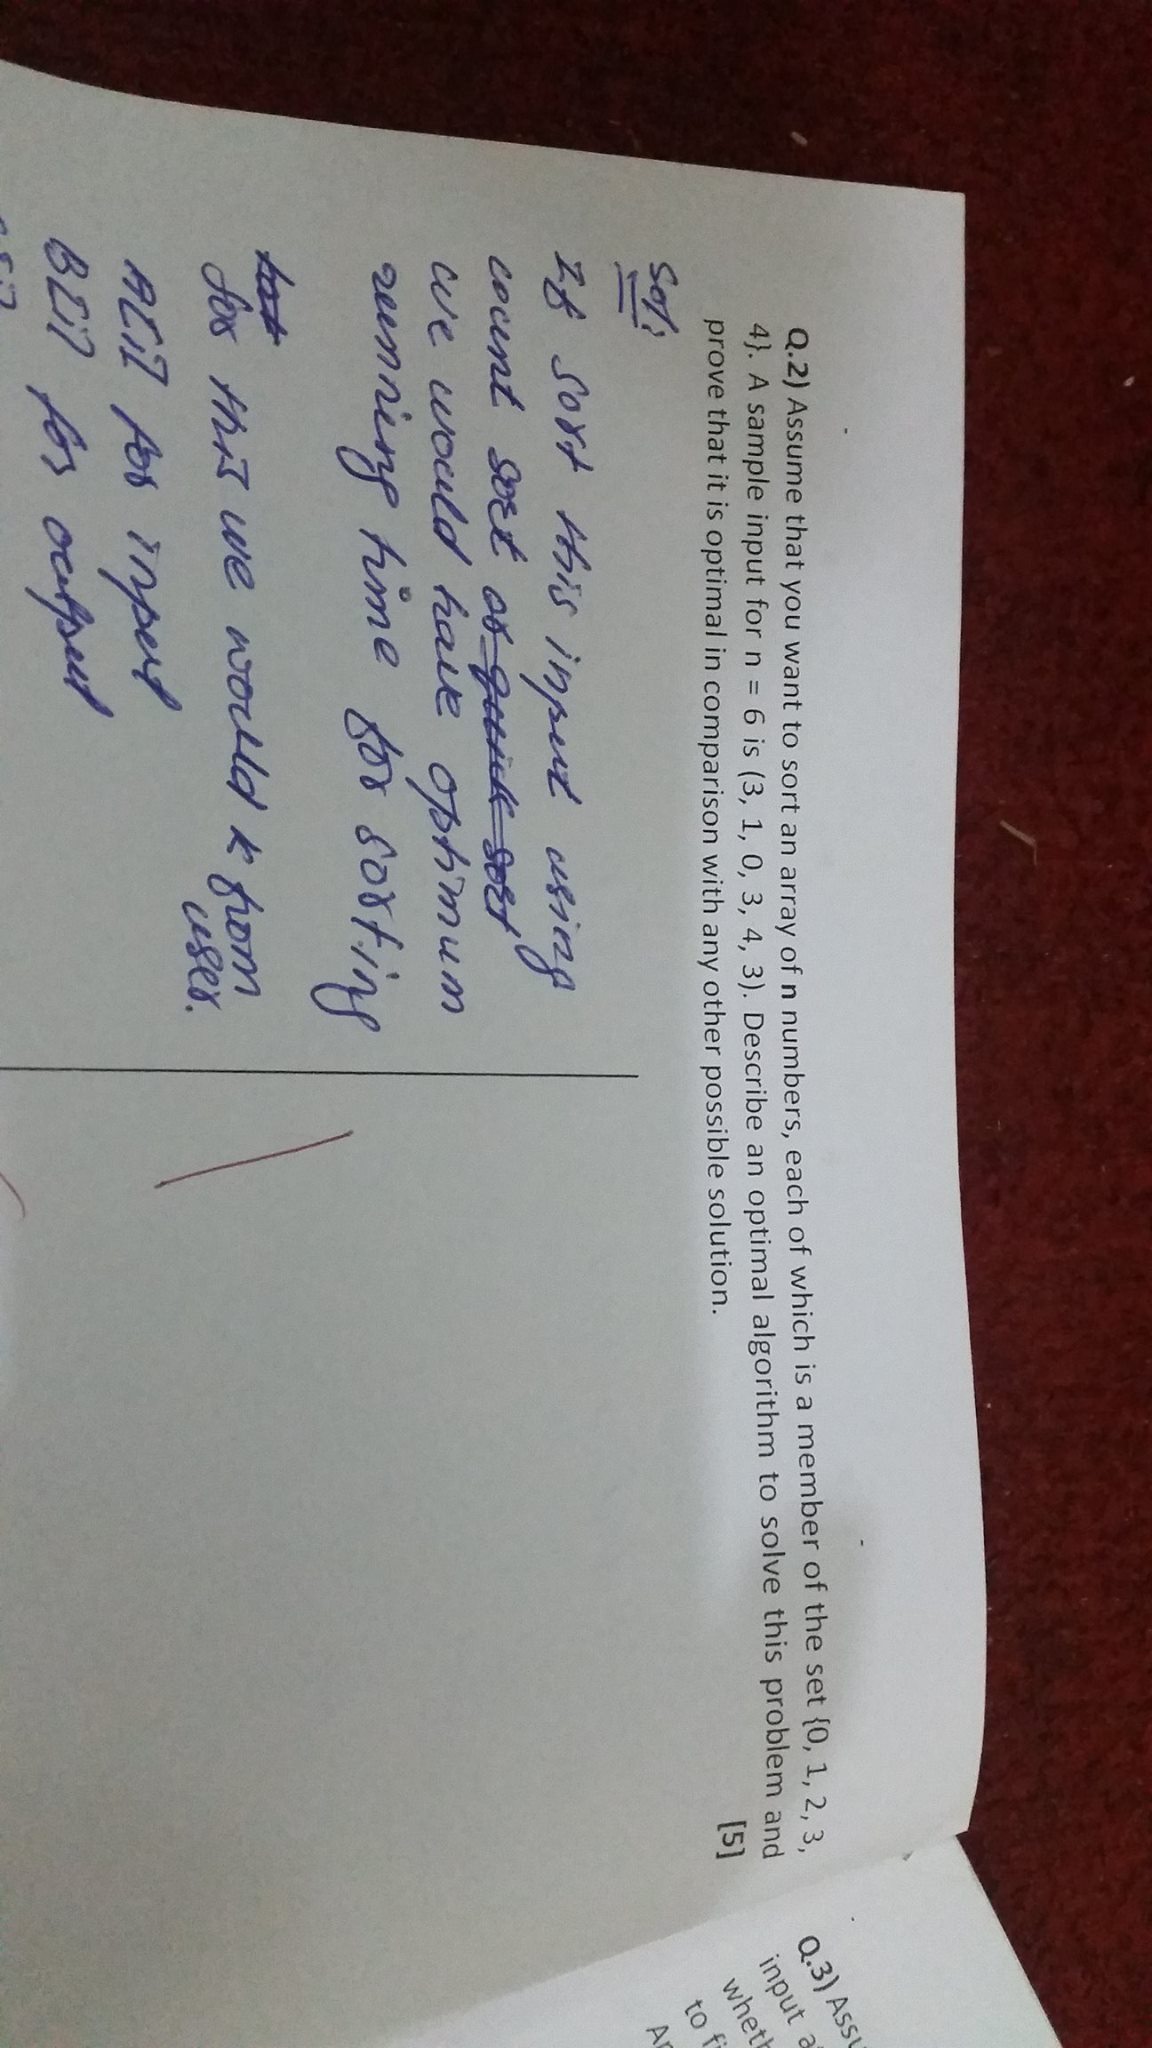 Q.2) Assume that you want to sort an array of n numbers, each of which is a member of the set {0, 1, 2, 3,
4}. A sample input for n = 6 is (3, 1, 0, 3, 4, 3). Describe an optimal algorithm to solve this problem and
prove that it is optimal in comparison with any other possible solution. [5]
Sol:
If sort this input using
count sort or quick sort
we would have optimum
running time for sorting
for this we would k from
user.
A[i] for input
B[i] for output
Q.3) Assu
input a
wheth
to fi